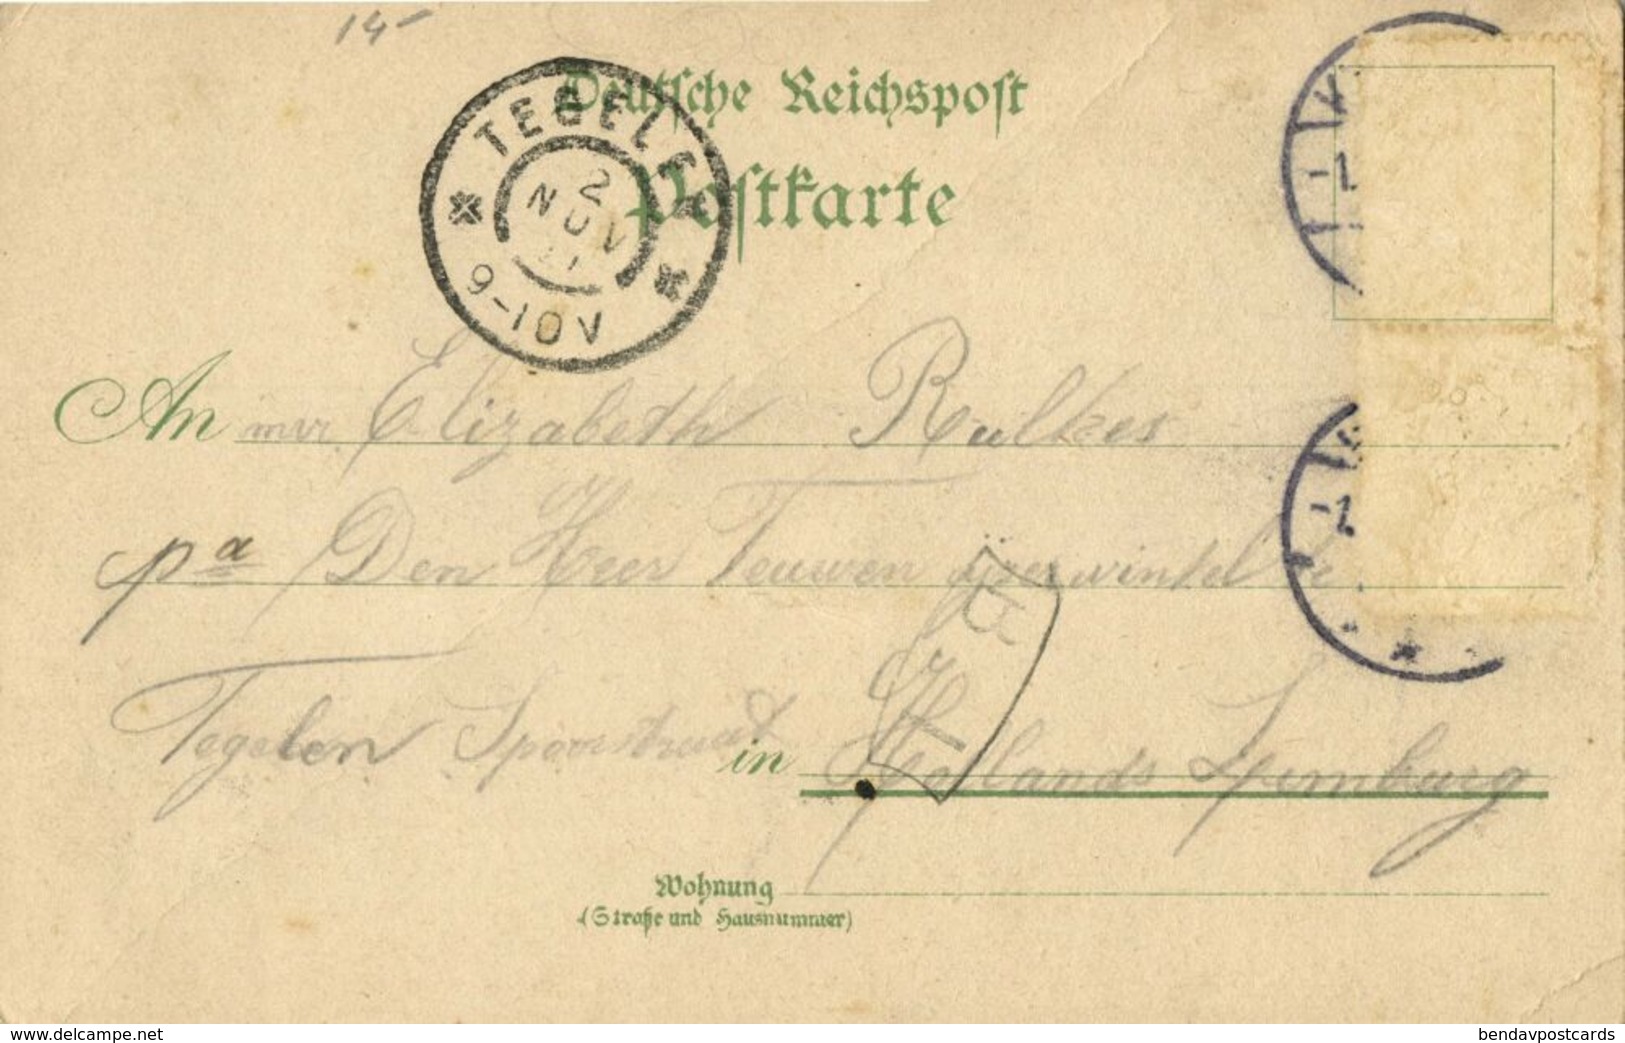 14-
Deutsche Reichspost
Postkarte
TEGELEN
2
NOV
9-10V
-1
-1
An mer Elizabeth Rulkes
pa Den Heer Teuwen ijzerwinkel
Tegelen Spoorstraat in Hollands Limburg
Wohnung
(Straße und Hausnummer)
www.delcampe.net
bendavpostcards